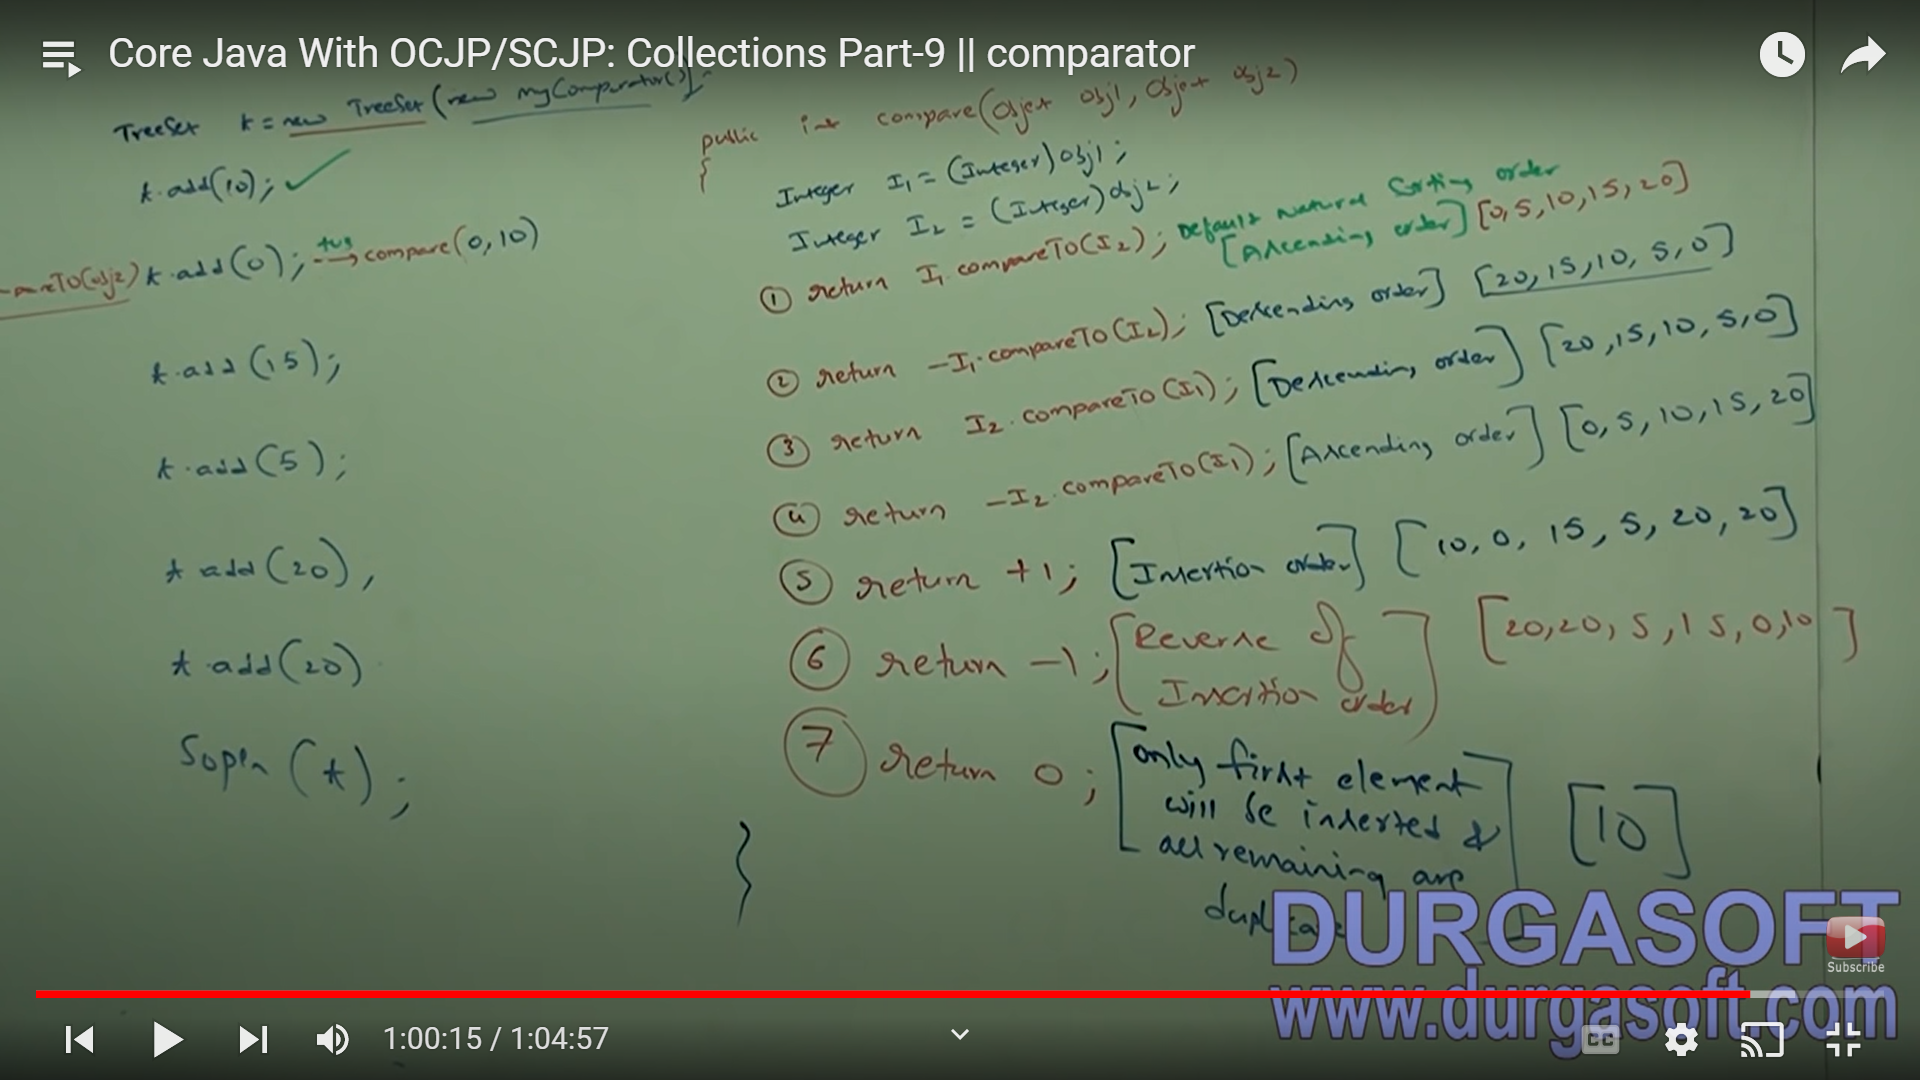 Core Java With OCJP/SCJP: Collections Part-9 || comparator
TreeSet t = new TreeSet(new myComparator());
t.add(10); ✓
pareTo(obj2) t.add(0); +ve → compare(0, 10)
t.add(15);
t.add(5);
t add(20),
t add(20)
Sopln (t);
public int compare(Object obj1, Object obj2)
{
Integer I1 = (Integer)obj1;
Integer I2 = (Integer)obj2;
① return I1.compareTo(I2); Default Natural Sorting order
[Ascending order] [0, 5, 10, 15, 20]
② return -I1.compareTo(I2); [Descending order] [20, 15, 10, 5, 0]
③ return I2.compareTo(I1); [Descending order] [20, 15, 10, 5, 0]
④ return -I2.compareTo(I1); [Ascending order] [0, 5, 10, 15, 20]
⑤ return +1; [Insertion order] [10, 0, 15, 5, 20, 20]
⑥ return -1; [Reverse of
Insertion order] [20, 20, 5, 15, 0, 10]
⑦ return 0; [only first element
will be inserted &
all remaining are
] [10]
}
DURGASOFT
www.durgasoft.com
Subscribe
1:00:15 / 1:04:57
CC